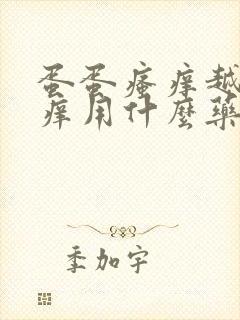 蛋蛋瘙痒越
痒用什麼藥
季加宇